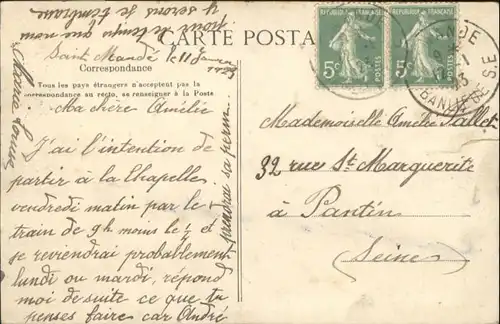 CARTE POSTA
Correspondance
Tous les pays étrangers n'acceptent pas la
correspondance au recto, se renseigner à la Poste
Saint Mandé le 11
Ma chère Amélie
J'ai l'intention de
partir à la Chapelle
vendredi matin par le
train de 9h moins le ¼ et
je reviendrai probablement
lundi ou mardi, répond
moi de suite ce que tu
penses faire car André
prendrai sa perm
pour le temps que nous
y serons je t'embrasse
Marie Louise
REPUBLIQUE FRANÇAISE
5c POSTES
REPUBLIQUE FRANÇAISE
5c POSTES
ANDE
13
SEINE
Mademoiselle Amélie Vallet
32 rue Ste Marguerite
à Pantin
Seine